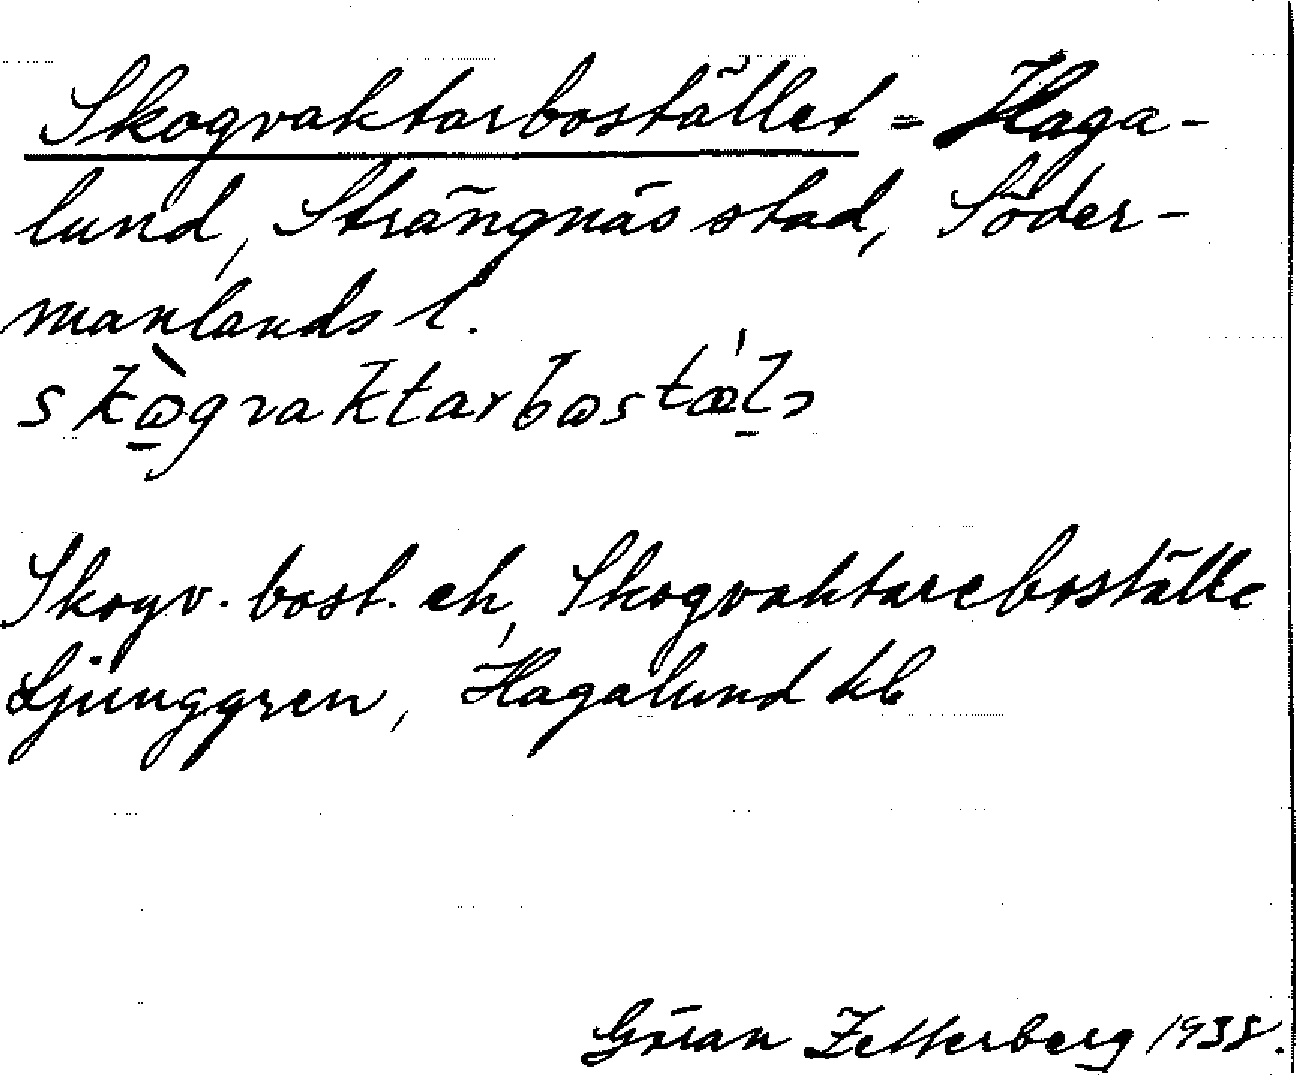 Skogvaktarbostället = Haga-
lund, Strängnäs stad, Söder-
manlands l.
skògvaktarbostä́lɔ
Skogv. bost. eh, Skogvaktarebställe
Ljunggren, Hagalund kb
Göran Zetterberg 1938.